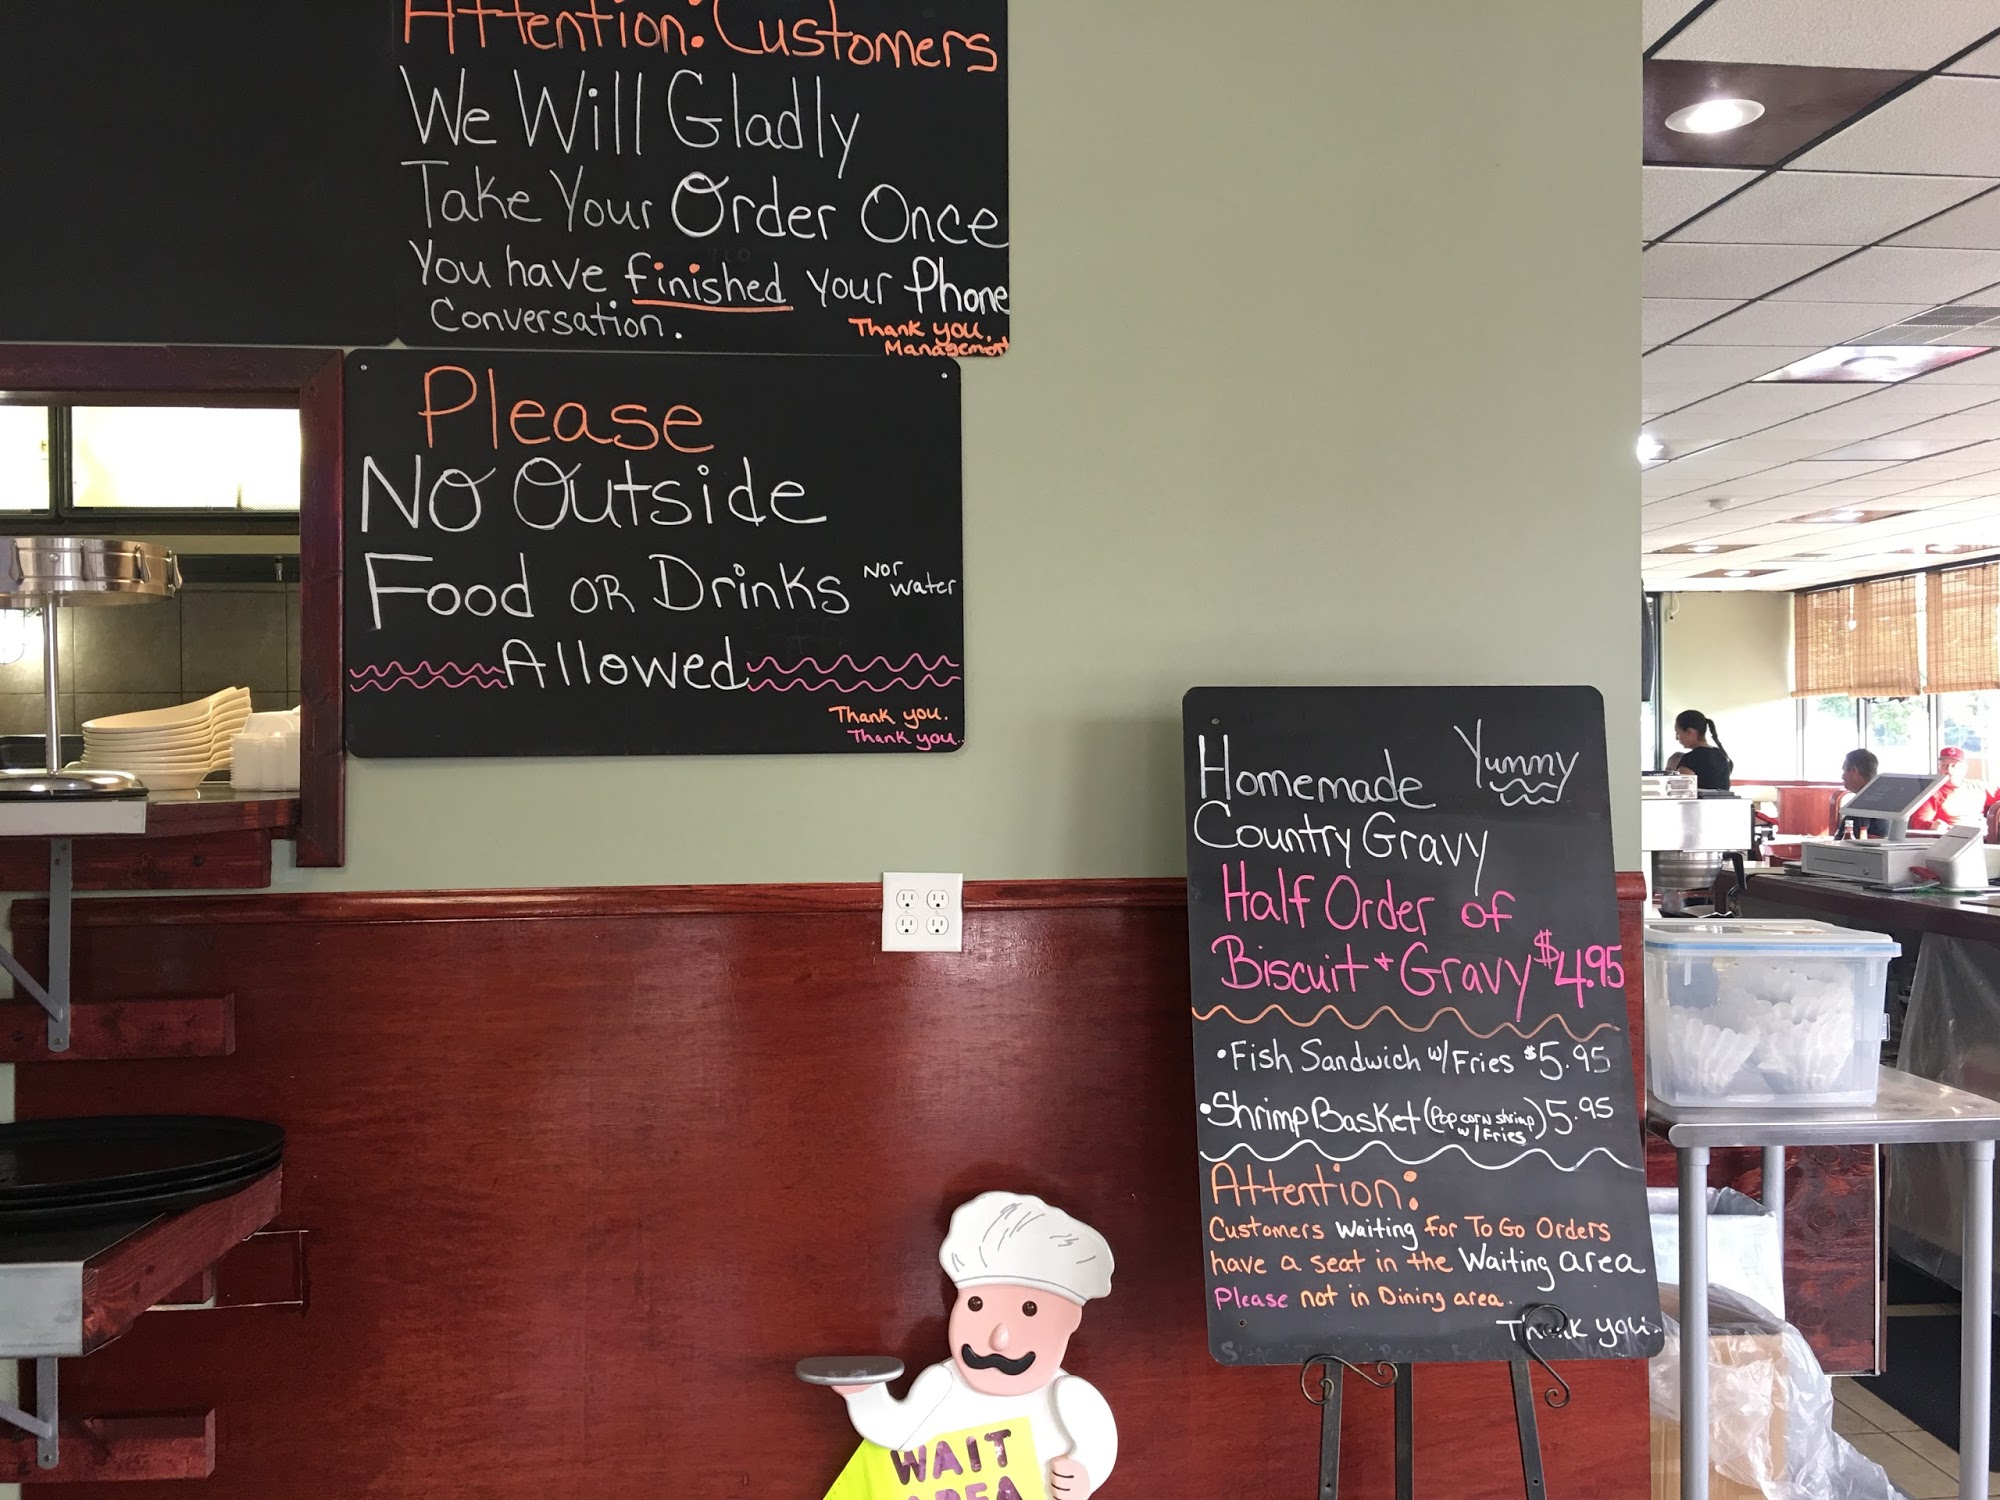 Attention: Customers
We Will Gladly
Take Your Order Once
You have finished your Phone
Conversation.
Thank you.
Management
Please
No Outside
Food or Drinks Nor water
Allowed
Thank you.
Thank you.
Homemade Yummy
Country Gravy
Half Order of
Biscuit + Gravy $4.95
• Fish Sandwich w/Fries $5.95
• Shrimp Basket (Popcorn shrimp w/Fries) 5.95
Attention:
Customers Waiting for To Go Orders
have a seat in the Waiting area
Please not in Dining area.
Thank you.
WAIT
AREA